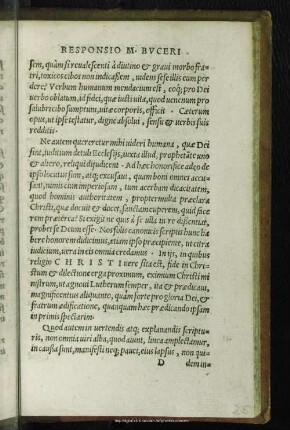 RESPONSIO M. BVCERI
sem, quàm si reualescenti à diutino & graui morbo fra-
tri, toxicos cibos non indicassem, uidem se se illis eum per
dere. Verbum humanum mendacium est, eoq; pro Dei
uerbo oblatum, id fidei, quæ iusti uita, quod uenenum pro
salubri cibo sumptum, uitæ corporis, officit. Cæterum
opus, ut ipse testatur, digne absolui, sensu & uerbis suis
redditis.
Ne autem quereretur mihi uideri humana, quæ Dei
sint, iudicium detuli Ecclesijs, iuxta illud, prophetæ
& altero, reliqui dijudicent. Ad hæc honorifice adeo de
ipso locutus sum, atq; excusaui, quam boni omnes accu-
sant, nimis eum imperiosam, tum acerbam dicacitatem,
quod hominis authoritatem, propter multa præclara
Christi, quæ docuit & docet, sanctam cuperem, quid fice
rem præterea? Si exigit ne quis à se ulla in re dissentiat,
probet se Deum esse. Nos solis canonicis scriptis hunc ha
bere honorem didicimus, etiam ipso præcipiente, ut citra
iudicium, uera in eis omnia credamus. In ijs, in quibus
religio CHRISTI uere sita est, fide in Chri-
stum & dilectione erga proximum, eximium Christi mi
nistrum, ut agnoui Lutherum semper, ita & prædicaui,
magnificentius aliquanto, quàm forte pro gloria Dei, &
fratrum ædificatione, quanquam hæc prædicando ipsam
in primis spectarim.
Quod autem in uertendis atq; explanandis scriptu-
ris, non omnia uiri alba, quod aiunt, linea amplectamur,
in causa sunt, manifesti neq; pauci, eius lapsus, non qui-
D demin=